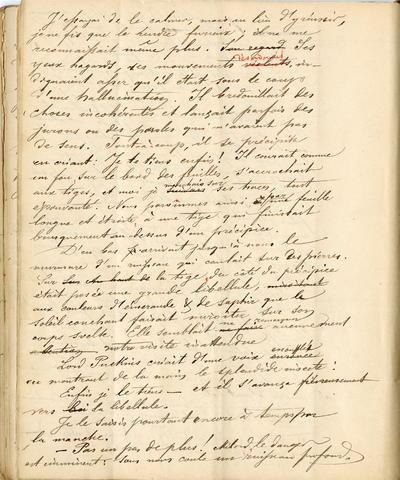 J'essayai de le calmer, mais au lieu d'y réussir,
je ne fis que le rendre furieux, il ne me
reconnaissait même plus. Son regard Ses
yeux hagards, ses mouvements violents, in-
désordonnés
diquaient assez qu'il était sous le coup
d'une hallucination. Il bredouillait des
choses incohérentes et lançait parfois des
jurons ou des paroles qui n'avaient pas
de sens. Tout à coup, il se précipite
en criant: Je te tiens enfin! Il courait comme
un fou sur le bord des feuilles, s'accrochait
aux tiges, et moi je marchais sur ses traces, tout
essoufflé. Nous parvînmes ainsi feuille
longue et étroite, à une tige qui finissait
brusquement au-dessus d'un précipice.
D'en bas parvenait jusqu'à nous le
murmure d'un ruisseau qui coulait sur des pierres.
Sur la tige, du côté du précipice
était posée une grande libellule,
aux couleurs d'émeraude & de saphir que le
soleil couchant faisait miroiter sur son
corps svelte. Elle semblait ne remarquer aucunement
notre visite inattendue
Lord Puckins criait d'une voix enrouée
en montrant de la main le splendide insecte:
Enfin je le tiens — et il s'avança fiévreusement
vers la libellule.
Je le saisis pourtant encore à temps par
la manche.
— Pas un pas de plus! Milord, le danger
est imminent: sous nous coule un ruisseau profond.